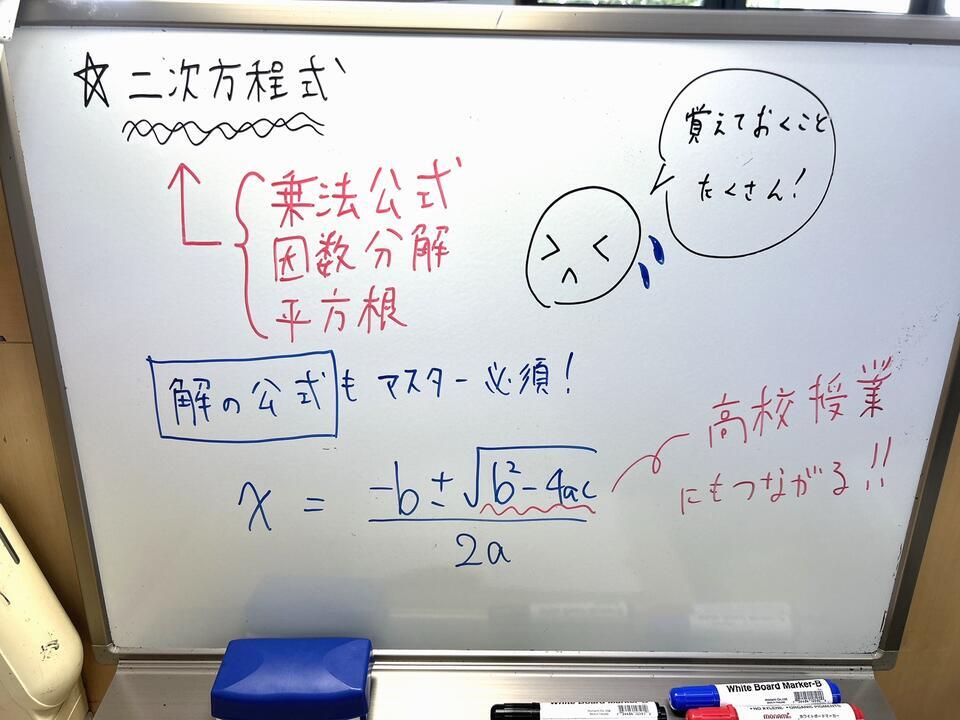 ☆二次方程式
覚えておくこと
たくさん!
乗法公式
因数分解
平方根
解の公式もマスター必須!
高校授業
にもつながる!!
x = (-b±√(b²-4ac))/2a
White Board Marker-B
monami
White Board Marker
NO XYLENE *ORGANIC PIGMENTS
monami ホワイトボードマーカー